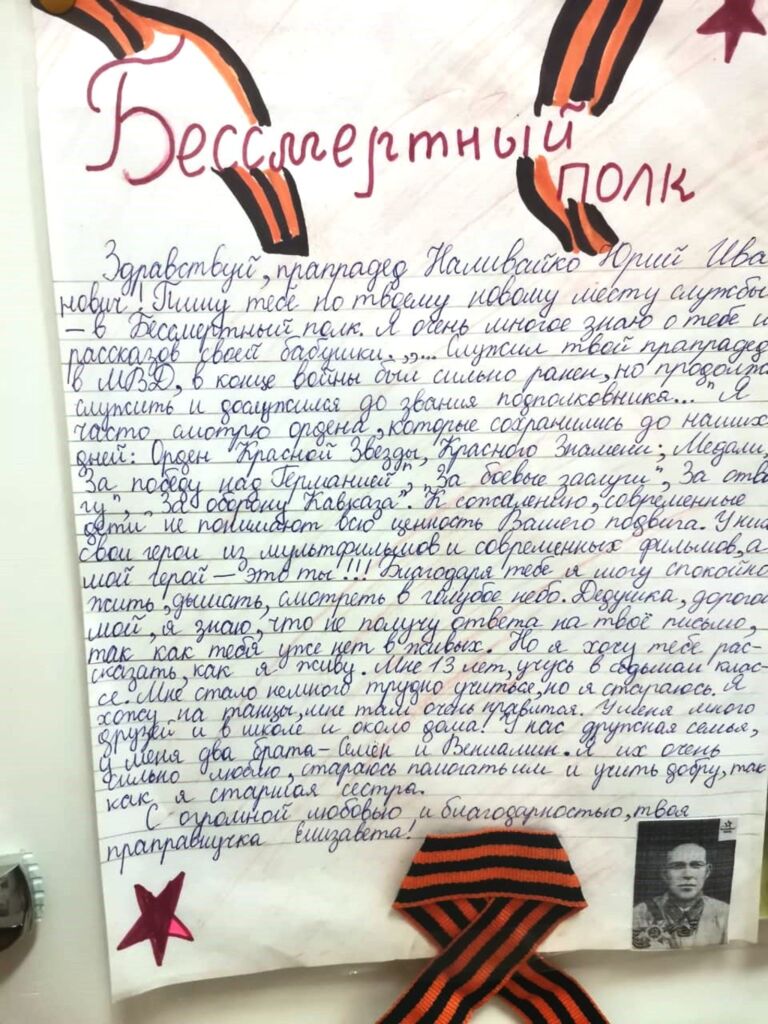 Бессмертный
полк
Здравствуй, прапрадед Наливайко Юрий Ива
нович! Пишу тебе по твоему новому месту службы
– в Бессмертный полк. Я очень многое знаю о тебе и
рассказов своей бабушки. „... Служил твой прапрадед
в МВД, в конце войны был сильно ранен, но продолжа
служить и дослужился до звания подполковника..." Я
часто смотрю ордена, которые сохранились до наших
дней: Орден "Красной Звезды, Красного Знамени; Медали,
За победу над Германией", "За боевые заслуги", За отва
гу", „За оборону Кавказа". К сожалению, современные
дети не понимают всю ценность Вашего подвига. У них
свои герои из мультфильмов и современных фильмов, а
мой герой – это ты!!! Благодаря тебе я могу спокойно
жить, дышать, смотреть в голубое небо. Дедушка, дорого
мой, я знаю, что не получу ответа на твоё письмо,
так как тебя уже нет в живых. Но я хочу тебе рас-
сказать, как я живу. Мне 13 лет, учусь в седьмом клас-
се. Мне стало немного трудно учиться, но я стараюсь. Я
хожу на танцы, мне там очень нравится. У меня много
друзей и в школе и около дома! У нас дружная семья,
у меня два брата – Семён и Вениамин. Я их очень
сильно люблю, стараюсь помогать им и учить добру, так
как я старшая сестра.
С огромной любовью и благодарностью, твоя
праправнучка Елизавета!